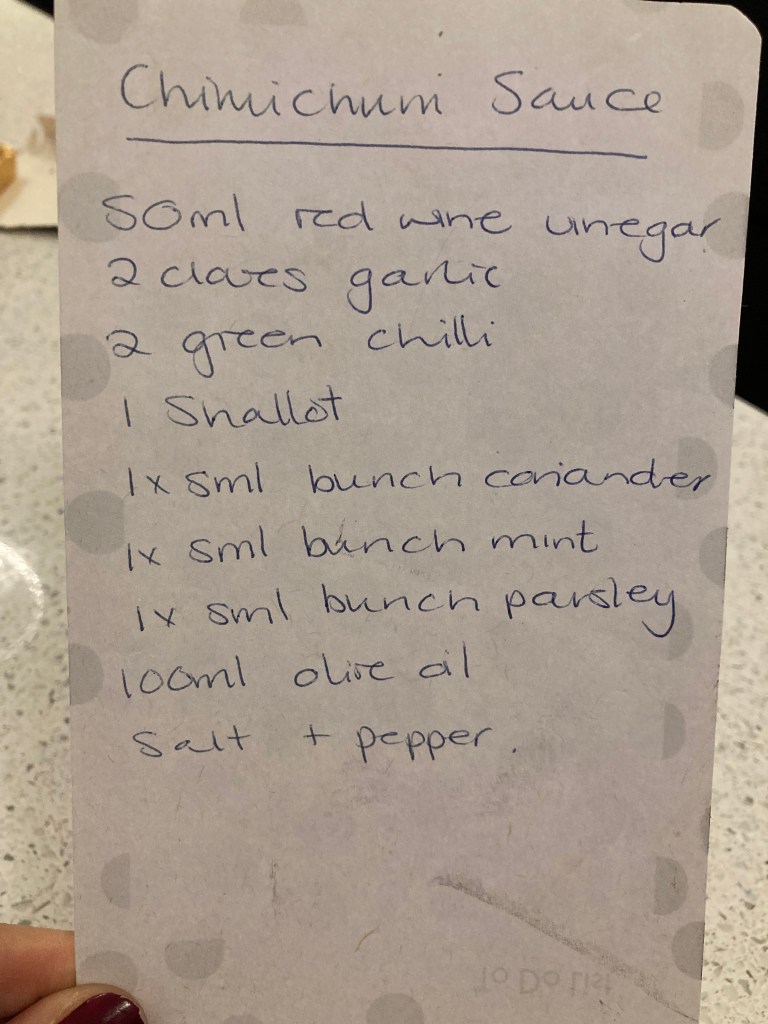 Chimichurri Sauce
50ml red wine vinegar
2 cloves garlic
2 green chilli
1 Shallot
1x sml bunch coriander
1x sml bunch mint
1x sml bunch parsley
100ml olive oil
Salt + pepper.
To Do List